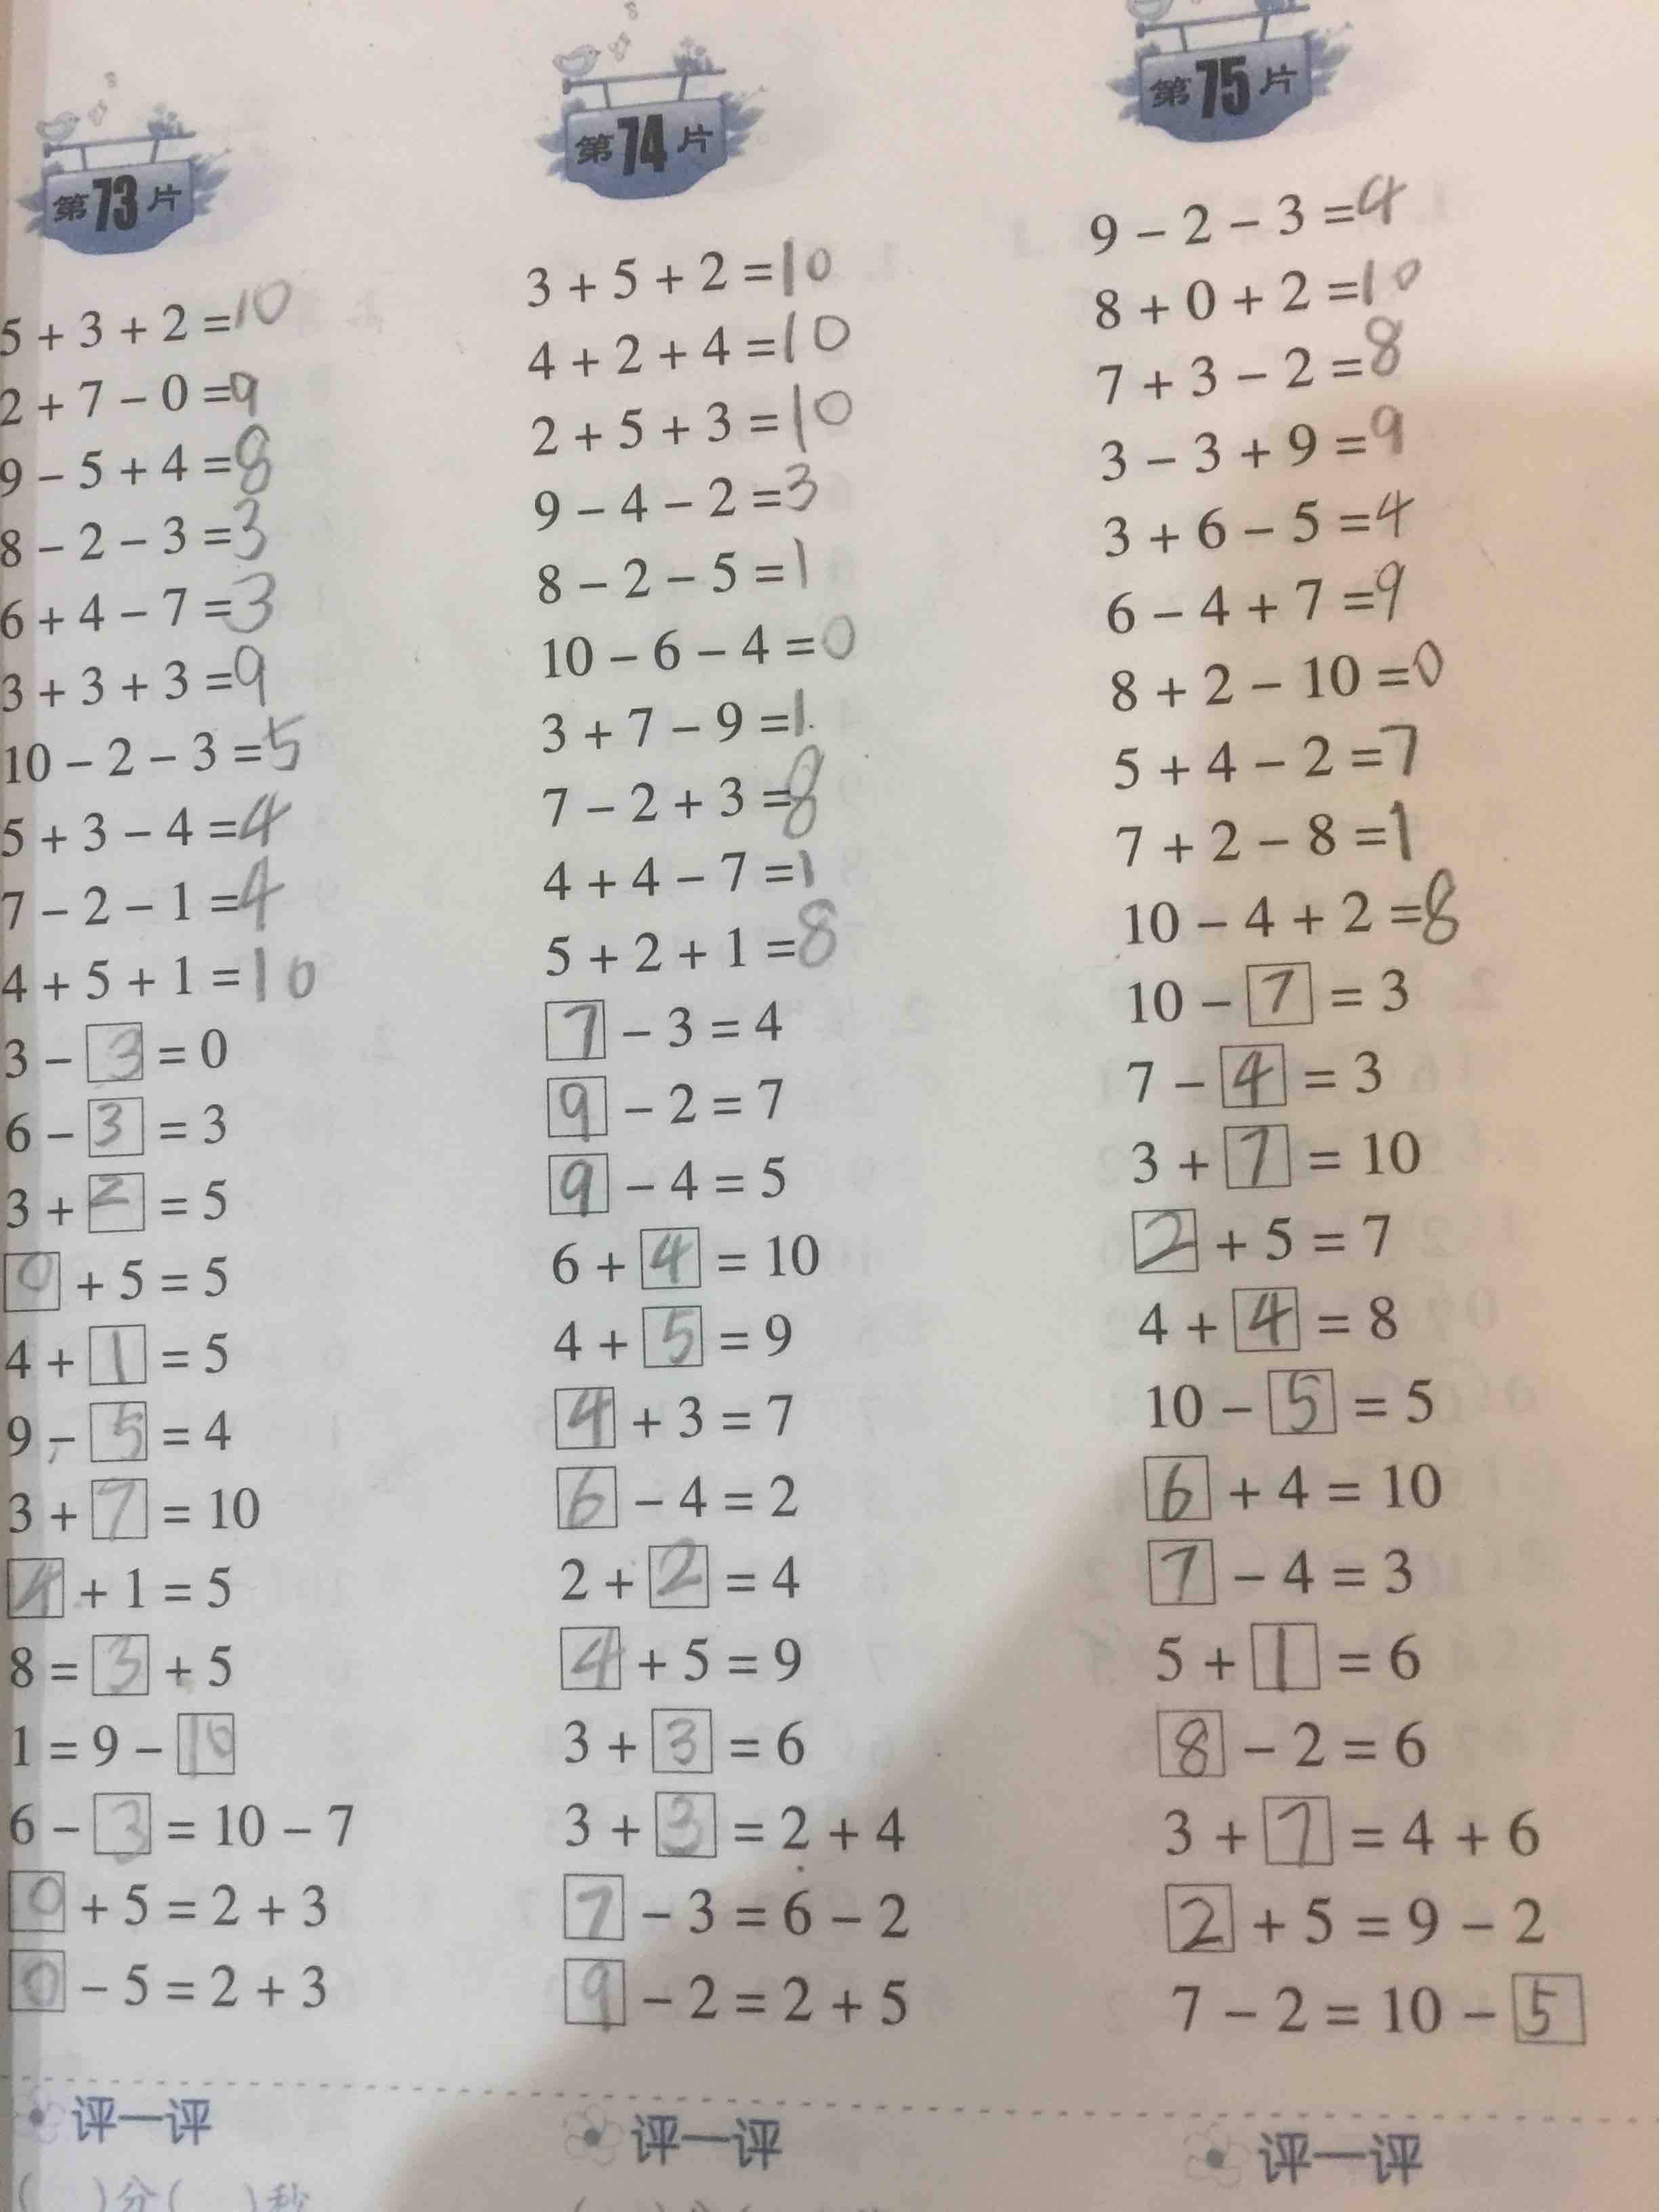 第73片
5 + 3 + 2 = 10
2 + 7 - 0 = 9
9 - 5 + 4 = 8
8 - 2 - 3 = 3
6 + 4 - 7 = 3
3 + 3 + 3 = 9
10 - 2 - 3 = 5
5 + 3 - 4 = 4
7 - 2 - 1 = 4
4 + 5 + 1 = 10
3 - 3 = 0
6 - 3 = 3
3 + 2 = 5
0 + 5 = 5
4 + 1 = 5
9 - 5 = 4
3 + 7 = 10
4 + 1 = 5
8 = 3 + 5
1 = 9 - 10
6 - 3 = 10 - 7
0 + 5 = 2 + 3
0 - 5 = 2 + 3
评一评
( )分( )秒
第74片
3 + 5 + 2 = 10
4 + 2 + 4 = 10
2 + 5 + 3 = 10
9 - 4 - 2 = 3
8 - 2 - 5 = 1
10 - 6 - 4 = 0
3 + 7 - 9 = 1
7 - 2 + 3 = 8
4 + 4 - 7 = 1
5 + 2 + 1 = 8
7 - 3 = 4
9 - 2 = 7
9 - 4 = 5
6 + 4 = 10
4 + 5 = 9
4 + 3 = 7
6 - 4 = 2
2 + 2 = 4
4 + 5 = 9
3 + 3 = 6
3 + 3 = 2 + 4
7 - 3 = 6 - 2
9 - 2 = 2 + 5
评一评
第75片
9 - 2 - 3 = 4
8 + 0 + 2 = 10
7 + 3 - 2 = 8
3 - 3 + 9 = 9
3 + 6 - 5 = 4
6 - 4 + 7 = 9
8 + 2 - 10 = 0
5 + 4 - 2 = 7
7 + 2 - 8 = 1
10 - 4 + 2 = 8
10 - 7 = 3
7 - 4 = 3
3 + 7 = 10
2 + 5 = 7
4 + 4 = 8
10 - 5 = 5
6 + 4 = 10
7 - 4 = 3
5 + 1 = 6
8 - 2 = 6
3 + 7 = 4 + 6
2 + 5 = 9 - 2
7 - 2 = 10 - 5
评一评